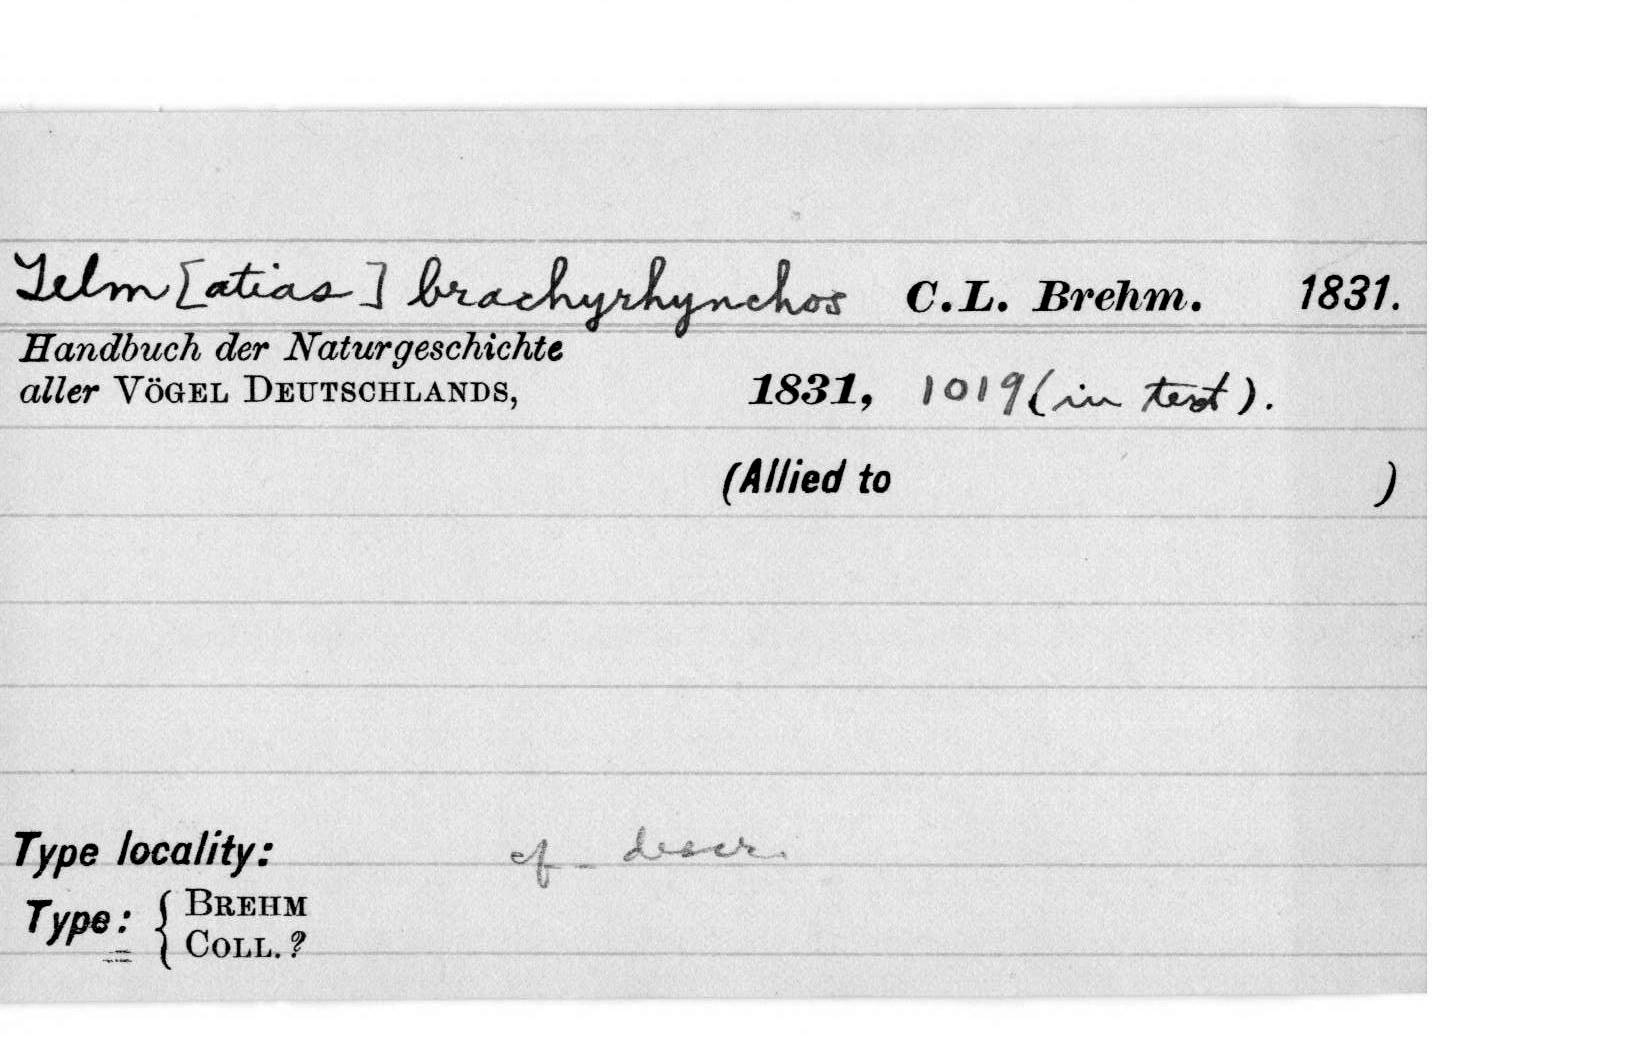 Telm [atias] brachyrhynchos C.L. Brehm. 1831.
Handbuch der Naturgeschichte
aller VÖGEL DEUTSCHLANDS, 1831, 1019 (in text).
(Allied to )
Type locality: cf - descr.
Type: { BREHM
COLL. ?